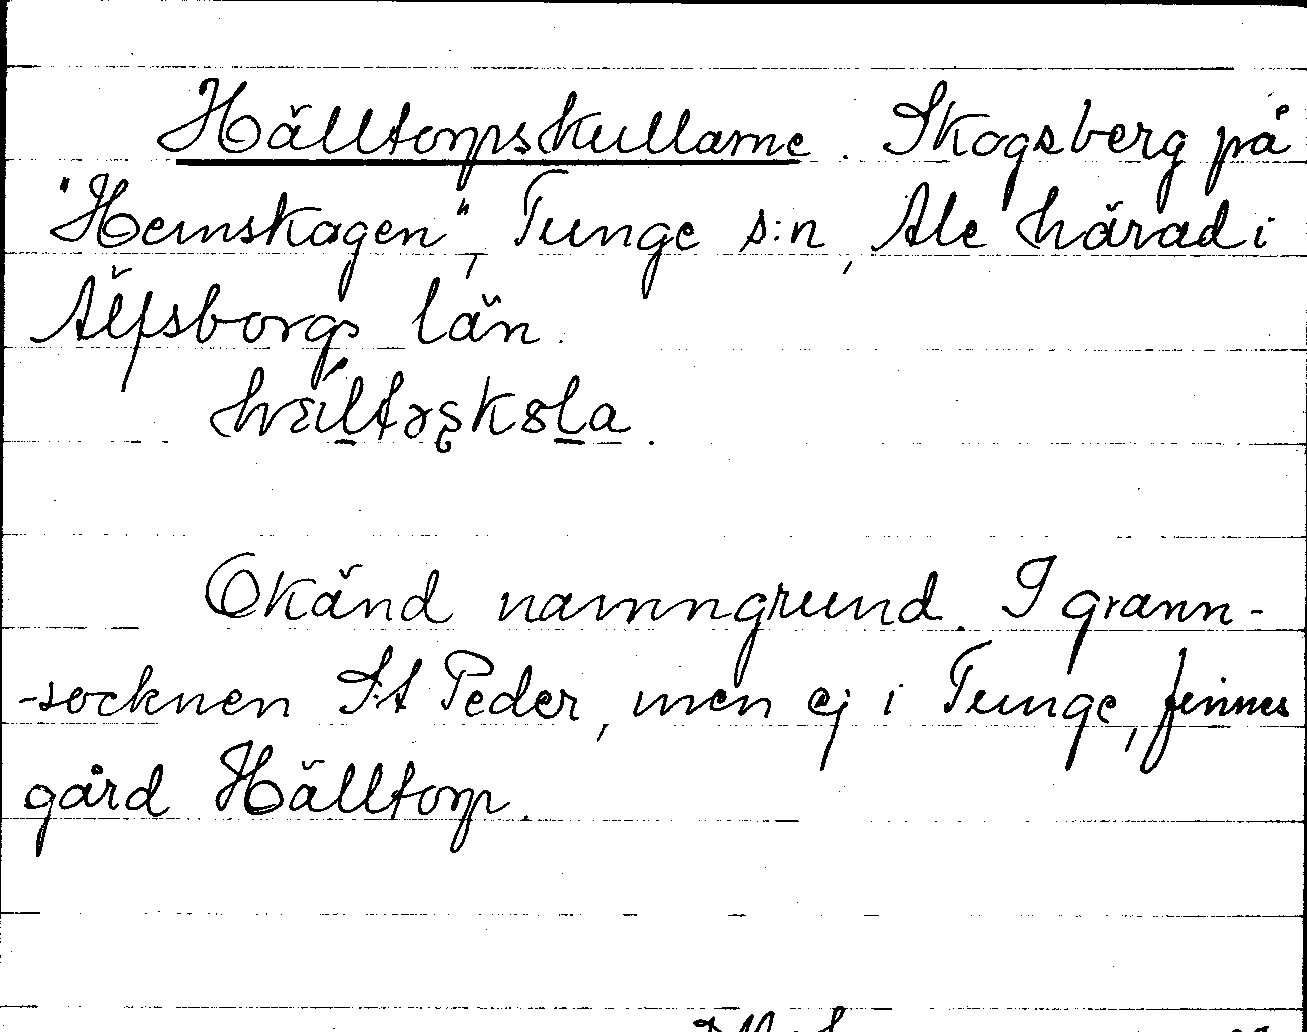 Hälltorpskullarne. Skogsberg på
"Hemskogen", Tunge s:n, Ale härad i
Älfsborgs län.
Okänd namngrund. I grann-
-socknen S:t Peder, men ej i Tunge, finnes
gård Hälltorp.